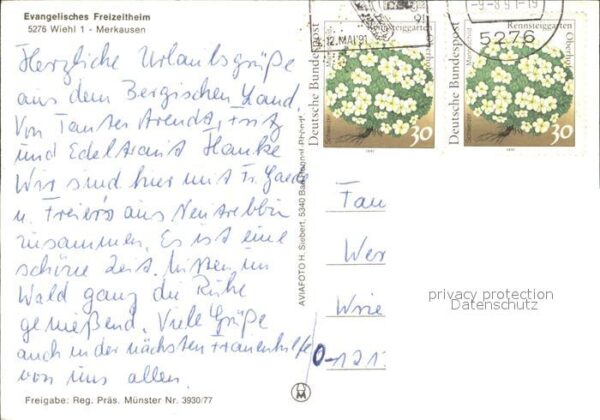 Evangelisches Freizeitheim
5276 Wiehl 1 - Merkausen
Herzliche Urlaubsgrüße
aus dem Bergischen Land.
Von Tante Arendt, Fritz
und Edeltraut Hanke
Wir sind hier mit Fr.
u. aus Neutrebbin
zusammen. Es ist eine
schöne Zeit. Mitten im
Wald ganz die Ruhe
genießend. Viele Grüße
auch in der nächsten Frauenhilfe
von uns allen.
Freigabe: Reg. Präs. Münster Nr. 3930/77
AVIAFOTO H. Siebert, 5340 Bad Honnef
12. MAI 91
Deutsche Bundespost
30
-9-8 91-19
5276
Deutsche Bundespost
Rennsteiggarten
Oberhof
30
Wer
Wrie
O-121
privacy protection
Datenschutz